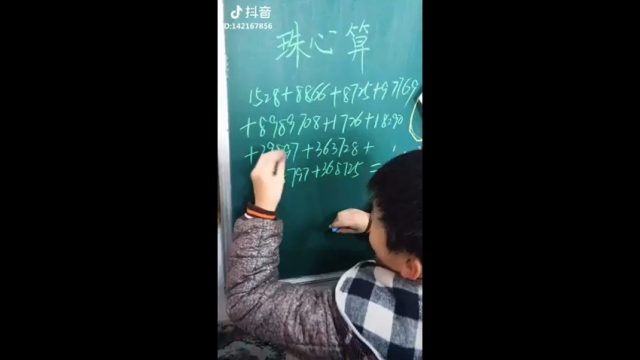 抖音
ID:142167856
珠心算
1528+8866+8725+97769
+8989708+1726+18290
+363728+
797+368725=